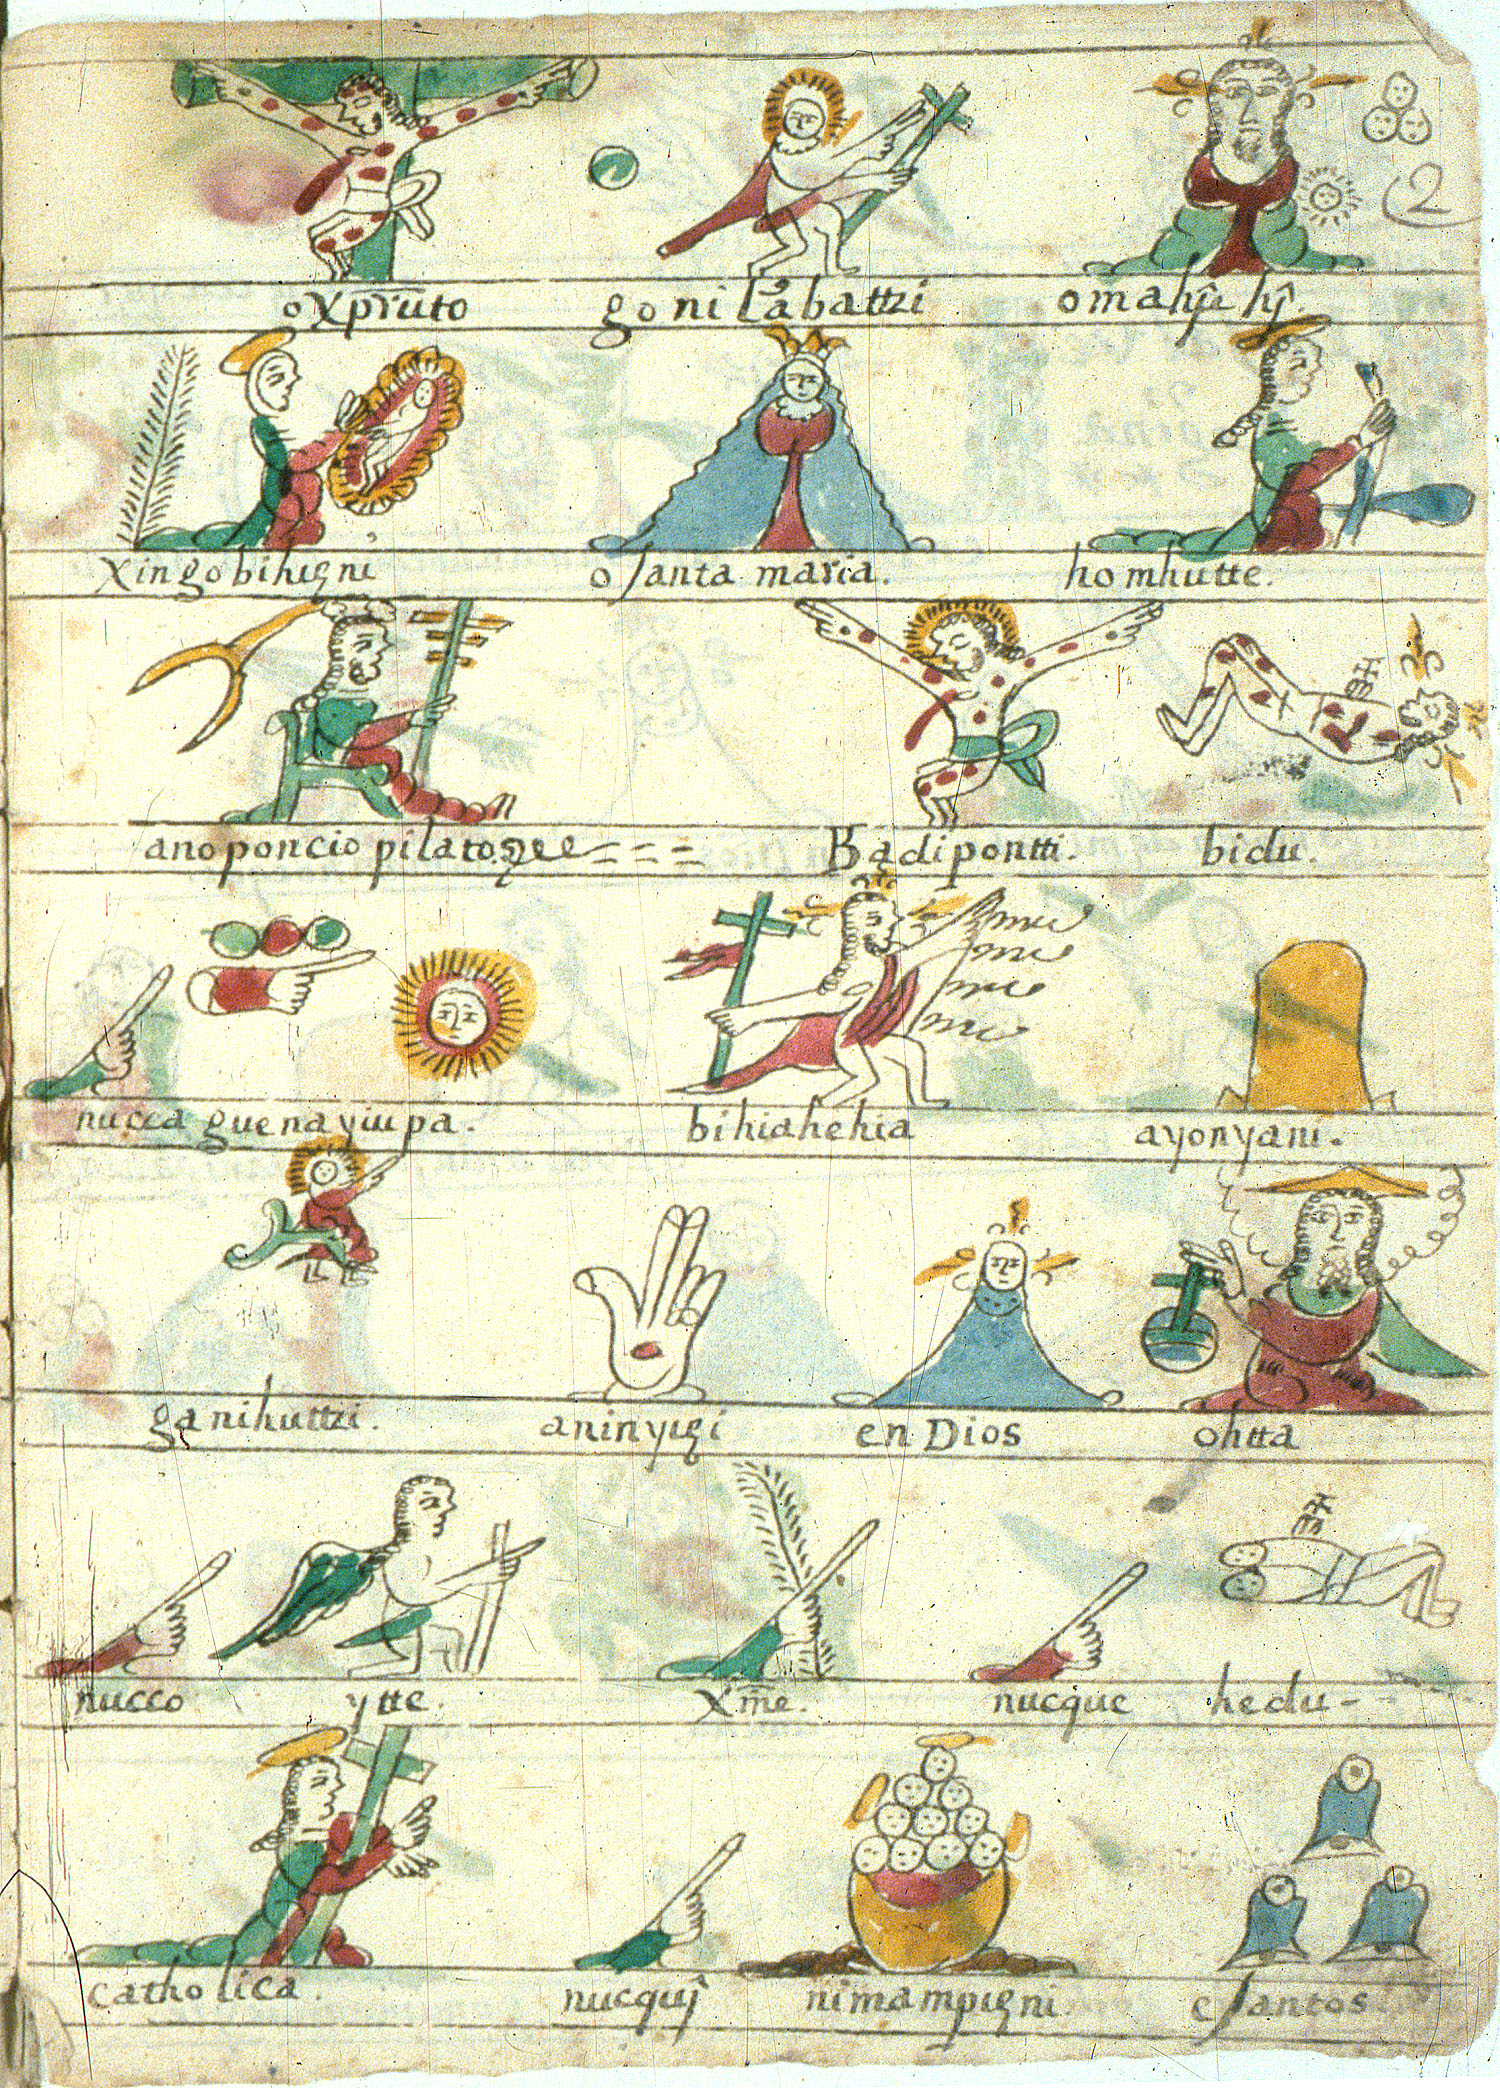 2
oxp̄r̄uto goni labattzi omahȷ̑ hȷ̑.
xingobihigni o ſanta maria. homhutte.
anoponcio pilatos Badipontti. bidu.
mu
mu
mu
mu
nucca guenayiupa. bihiahehia ayonyani.
ganihuttzi. aninyigi en Dios ohtta
nucco ytte. Xm̄e. nucque hedu-
catholica. nucquȷ̑ nimampigni eſantos